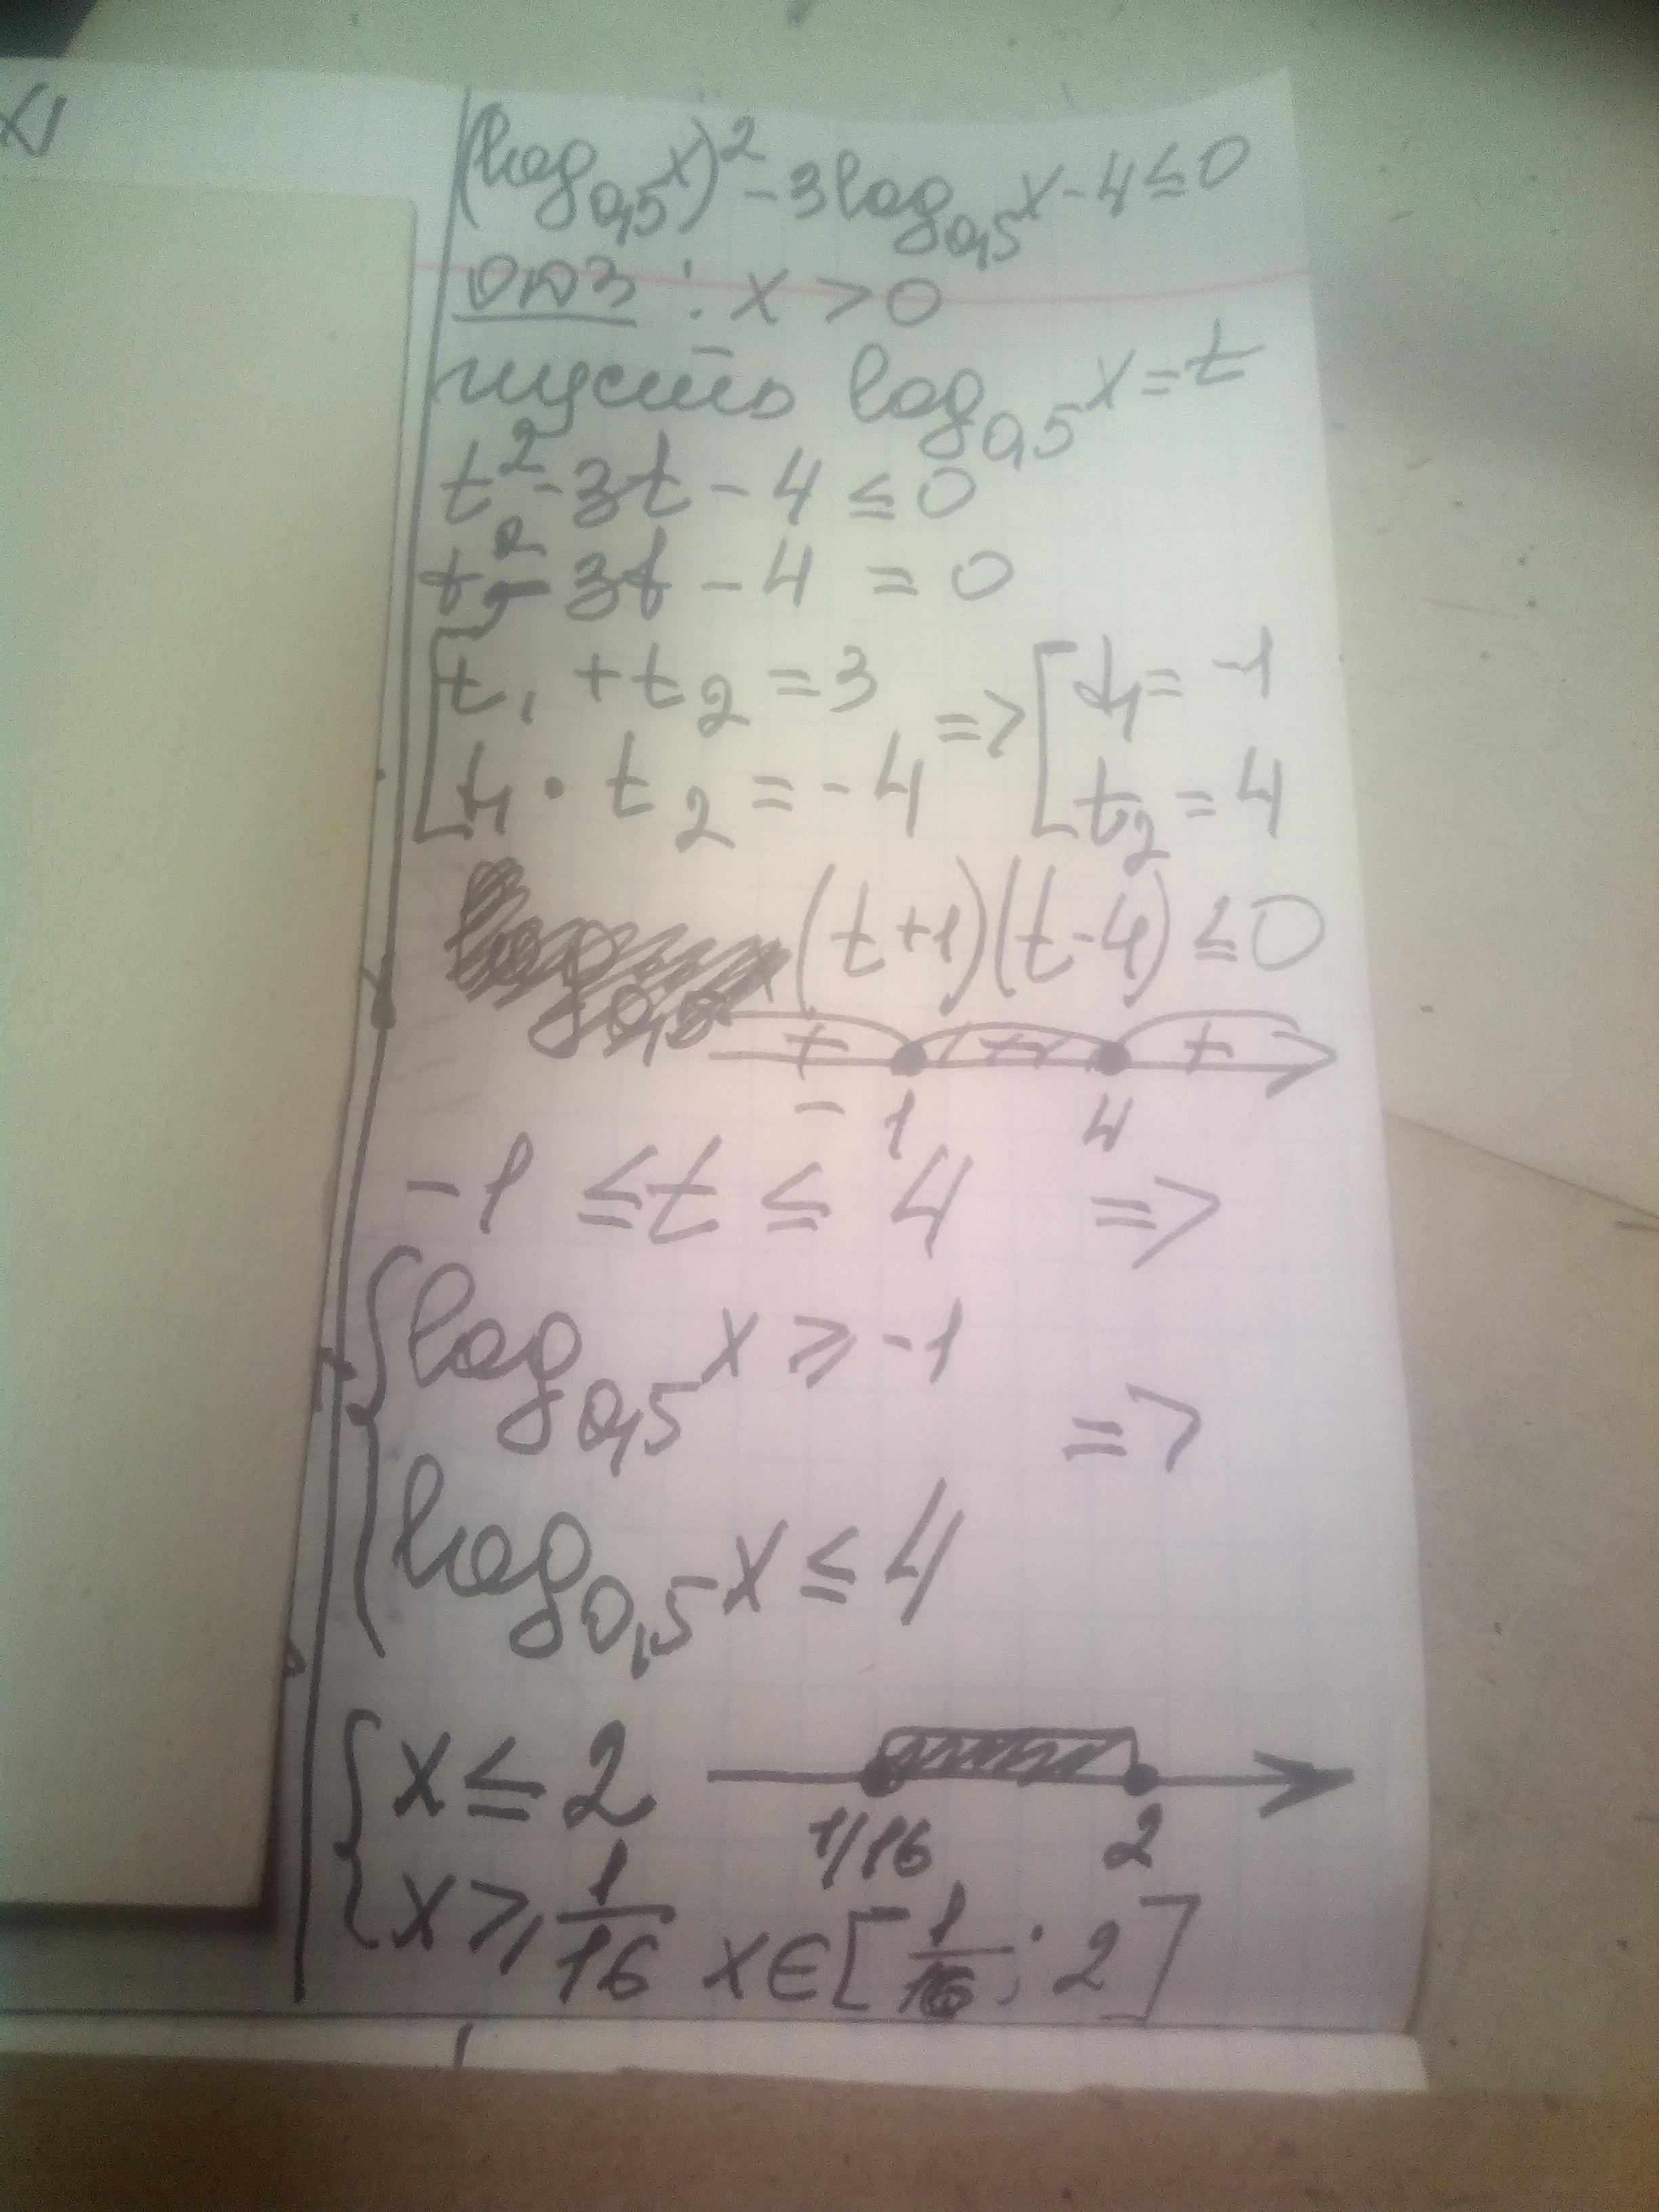 (log₀,₅x)² - 3log₀,₅x - 4 ≤ 0
ОДЗ : x > 0
пусть log₀,₅x = t
t² - 3t - 4 ≤ 0
t² - 3t - 4 = 0
[t₁ + t₂ = 3
t₁ · t₂ = -4 => [t₁ = -1
t₂ = 4
(t+1)(t-4) ≤ 0
+ +
-1 4
-1 ≤ t ≤ 4 =>
{log₀,₅x ≥ -1
log₀,₅x ≤ 4 =>
{x ≤ 2
x ≥ 1/16
1/16 2
x ∈ [1/16; 2]